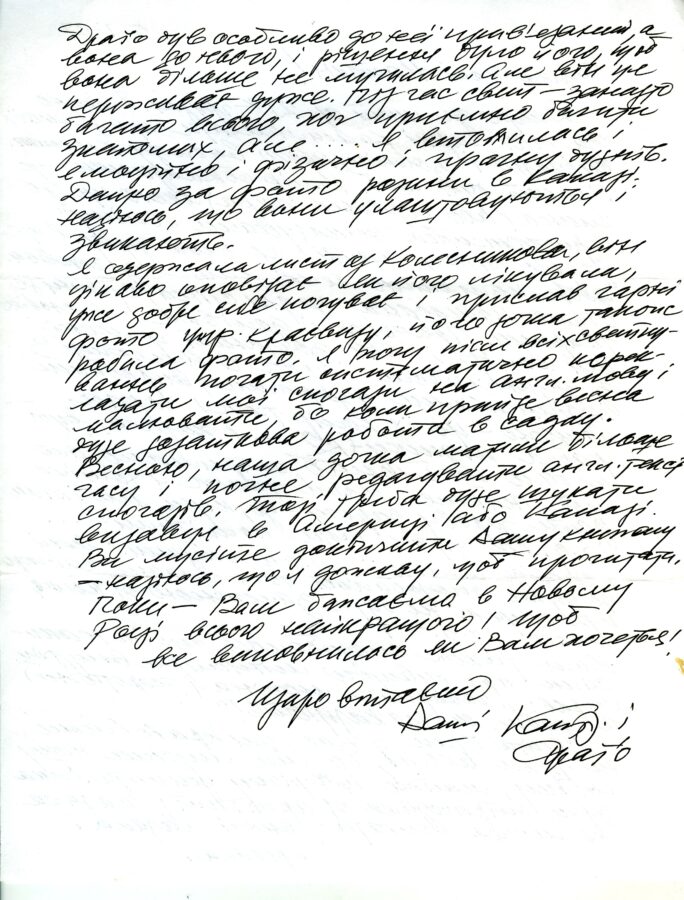 Драґо був особливо до неї прив'язаний, а
вона до нього, і рішення було його, щоб
вона більше не мучилась. Але він це
переживає дуже. Під час свят – занадто
багато всього хоч приємно бачити
знайомих, але .... я втомилась і
емоційно і фізично і прагну буднів.
Дякую за фото родини в Канаді.
Надіюсь, що вони улаштовуються і
звикають.
Я одержала лист од Колесникова, він
цікаво оповідає як його лікувала,
уже добре себе почуває і прислав гарні
фото укр. краєвиду, його дочка також
робила фото. Я хочу після всіх святку-
вань почати систематично перек-
ладати мої спогади на англ. мову і
малювати, бо коли прийде весна
буде додаткова робота в садку.
Весною, наша дочка матиме більше
часу і почне редагувати англ. текст
спогадів. Тоді треба буде шукати
видавця в Америці або Канаді.
Ви мусите докінчити Вашу книжку
– надіюсь, що я доживу, щоб прочитати.
Поки – Вам бажаєма в Новому
Році всього найкращого! щоб
все виповнилось як Вам хочеться!
Щиро вітаємо
Ваші і
Драґо